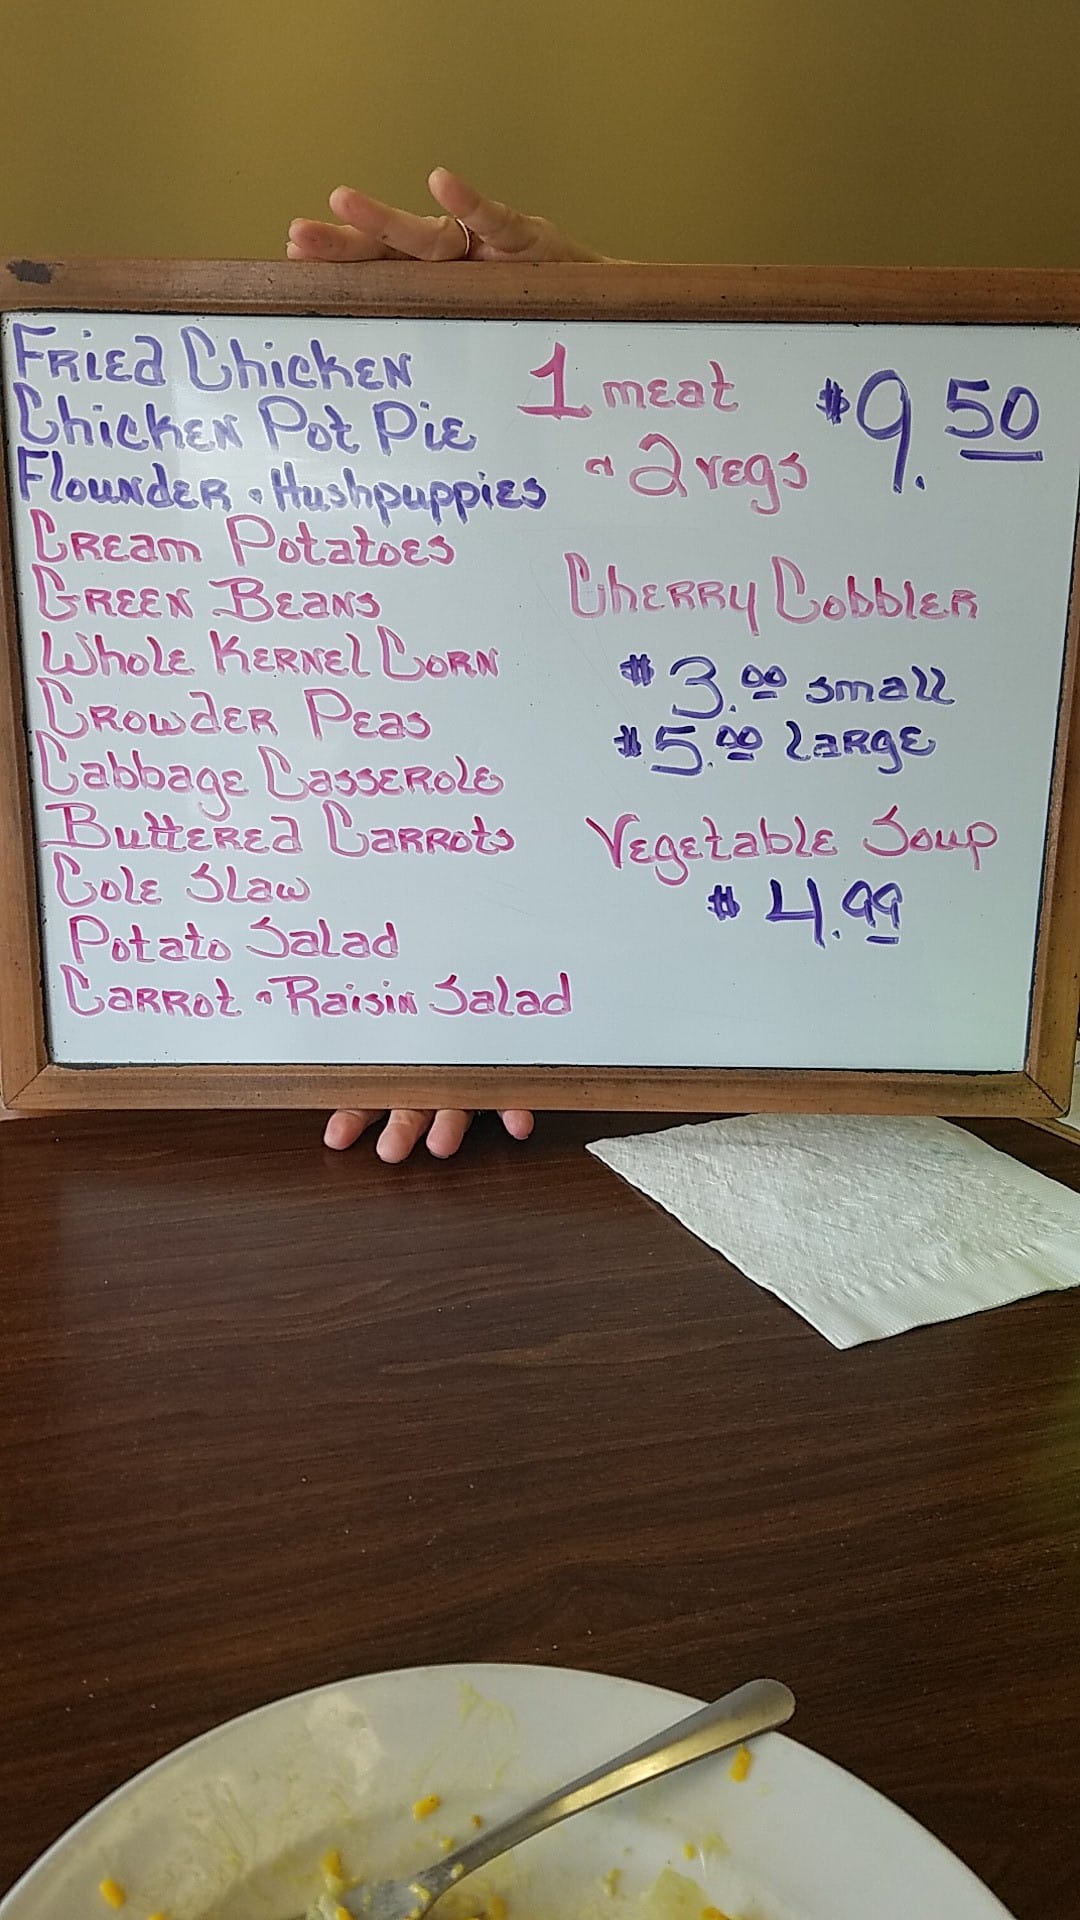 Fried Chicken
Chicken Pot Pie
Flounder & Hushpuppies
Cream Potatoes
Green Beans
Whole Kernel Corn
Crowder Peas
Cabbage Casserole
Buttered Carrots
Cole Slaw
Potato Salad
Carrot & Raisin Salad
1 meat $9.50
& 2 vegs
Cherry Cobbler
$3.00 small
$5.00 large
Vegetable Soup
$4.99